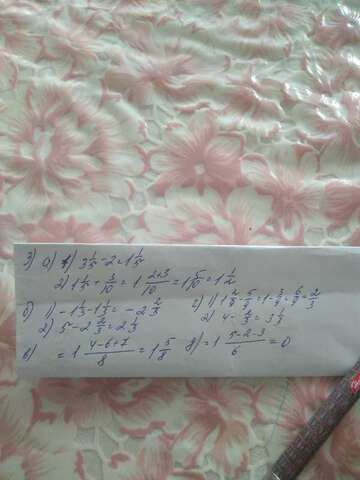 3) а) 1) 3 1/5 - 2 = 1 1/5
2) 1 1/5 + 3/10 = 1 2+3/10 = 1 5/10 = 1 1/2
б) 1) - 1 1/3 - 1 1/3 = - 2 2/3
2) 5 - 2 2/3 = 2 1/3
г) 1) 1 2/9 - 5/9 = 1 - 3/9 = 6/9 = 2/3
2) 4 - 2/3 = 3 1/3
в) = 1 4-6+7/8 = 1 5/8
д) = 1 5-2-3/6 = 0